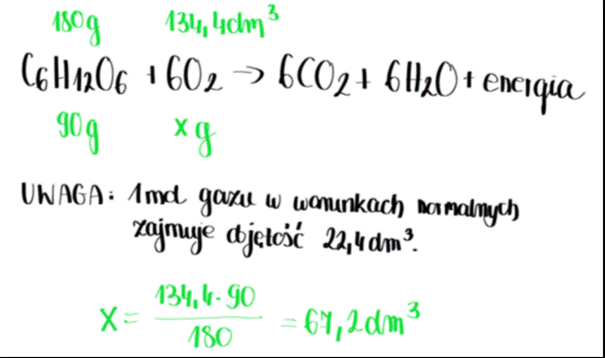 180g 134,4dm³
C₆H₁₂O₆ + 6O₂ → 6CO₂ + 6H₂O + energia
90g x g
UWAGA: 1mol gazu w warunkach normalnych
zajmuje objętość 22,4dm³.
X = 134,4·90 / 180 = 67,2dm³